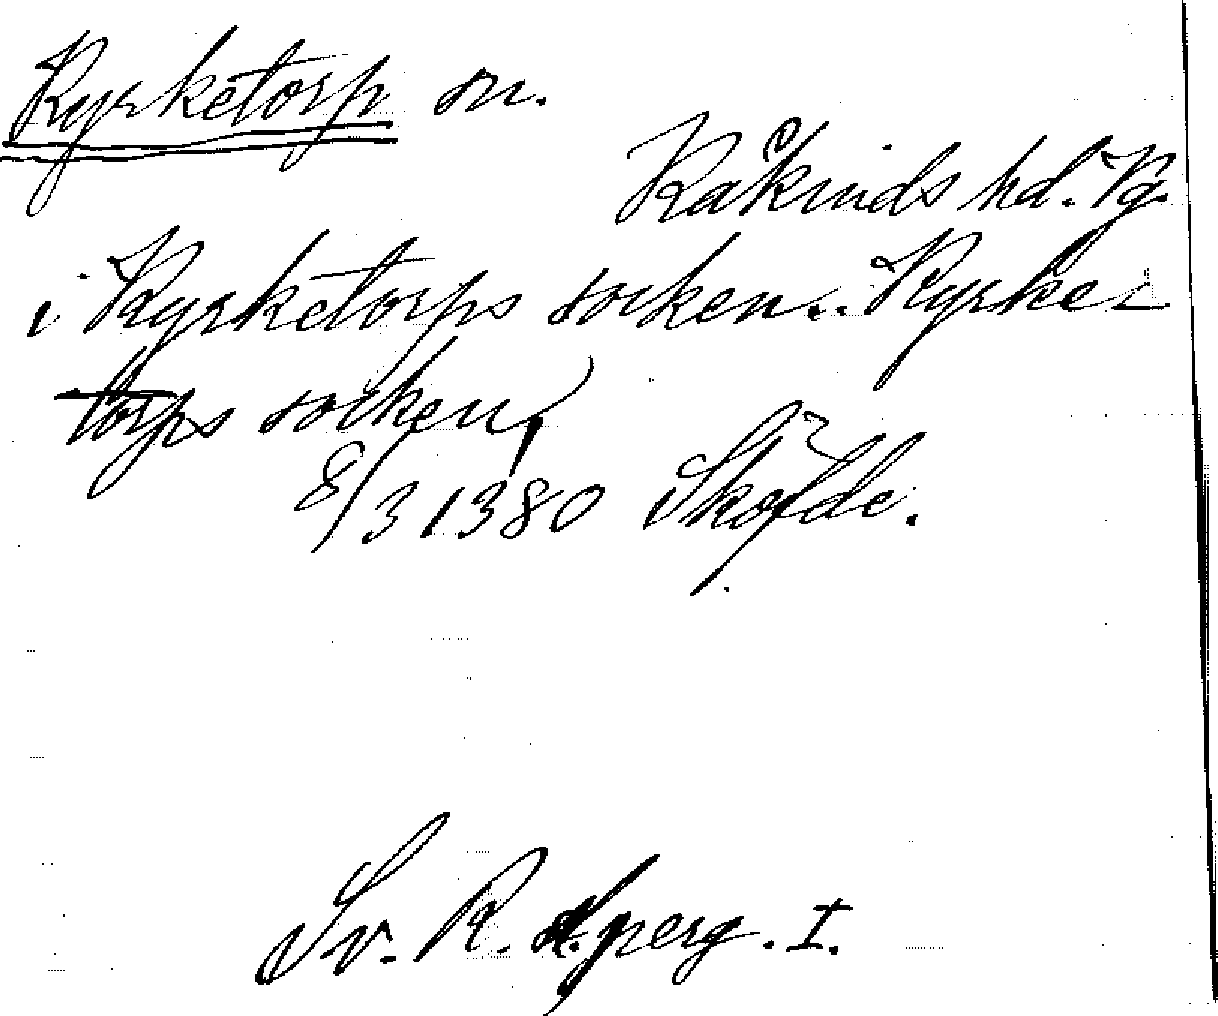 Kyrketorp sn.
Kåkinds hd. Vg.
i Kyrketorps socken.. Kyrke-
torps socken,
8/3 1380 Sköfde.
Sv. R. A. perg. I.